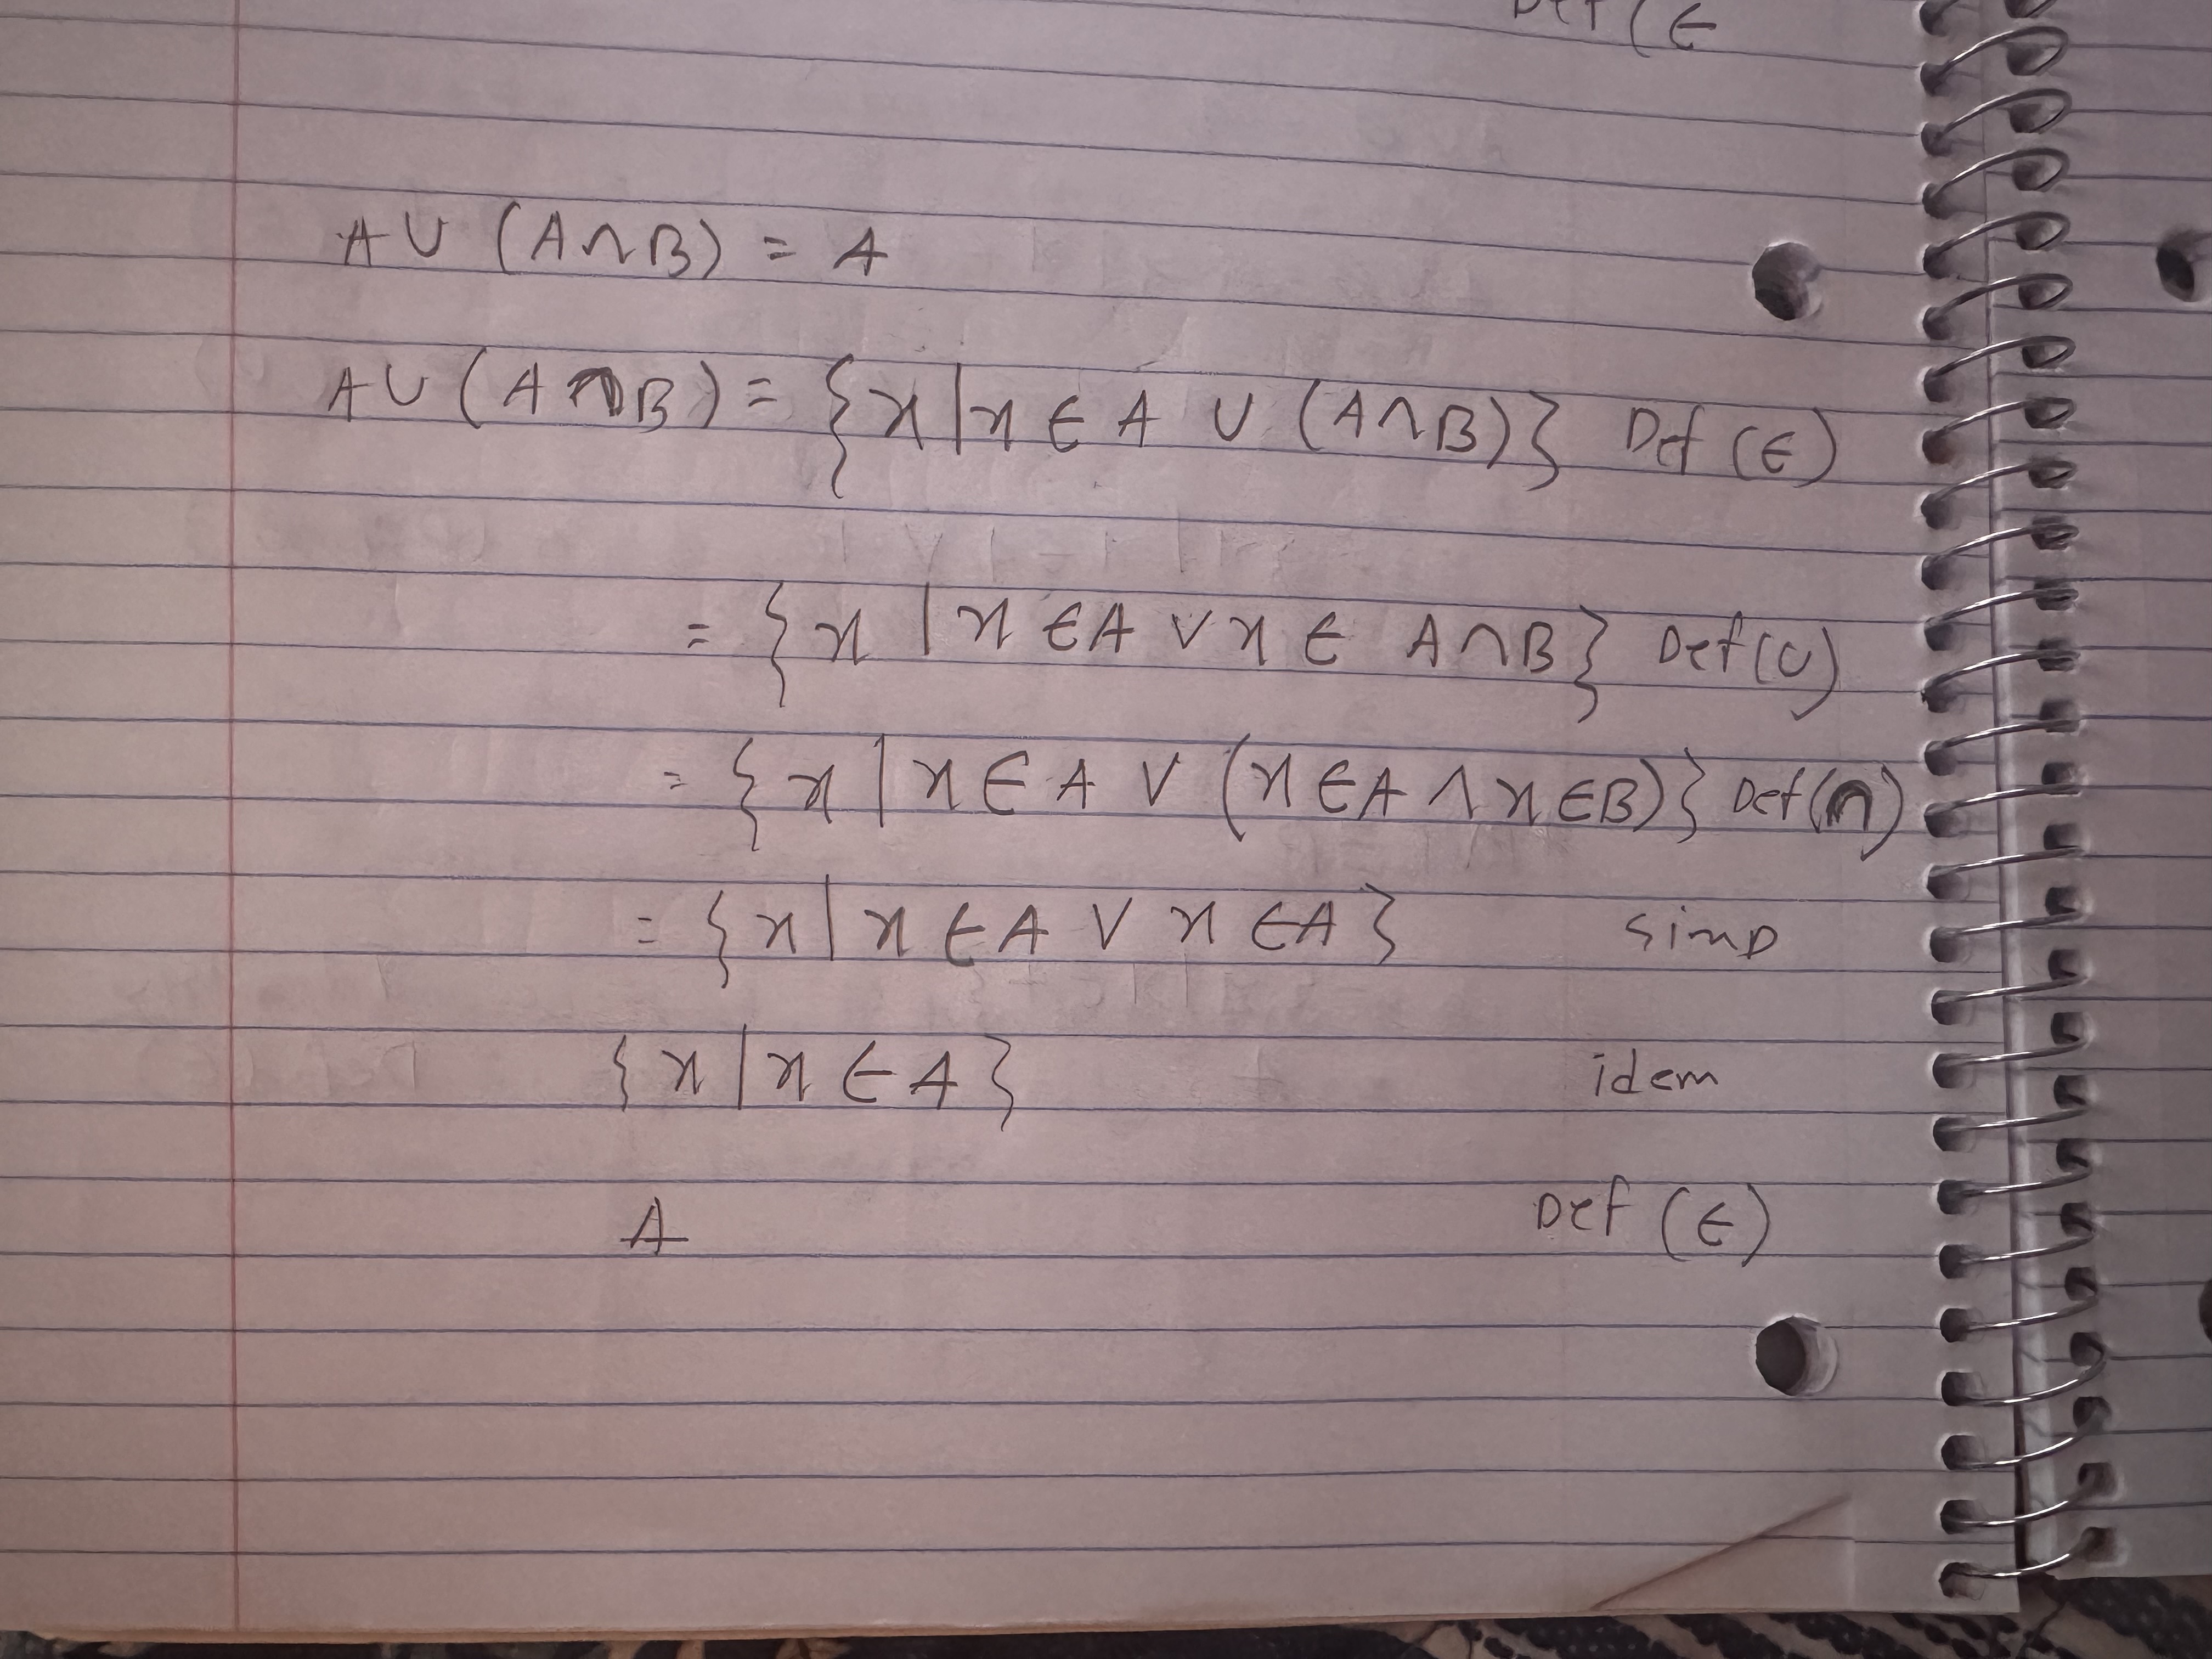 Def (∈
A ∪ (A ∩ B) = A
A ∪ (A ∩ B) = {x | x ∈ A ∪ (A ∩ B)} Def (∈)
= {x | x ∈ A ∨ x ∈ A ∩ B} Def (∪)
= {x | x ∈ A ∨ (x ∈ A ∧ x ∈ B)} Def (∩)
= {x | x ∈ A ∨ x ∈ A} simp
{x | x ∈ A} idem
A Def (∈)